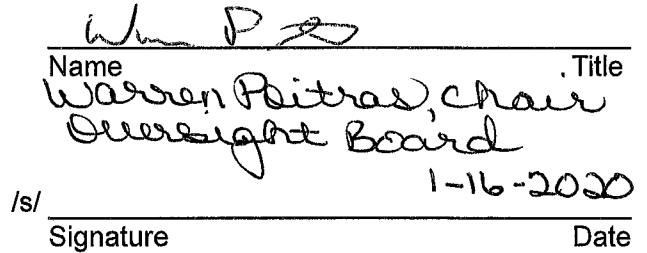 Wm P
Name Title
Warren Poitras, Chair
Oversight Board
1-16-2020
/s/
Signature Date